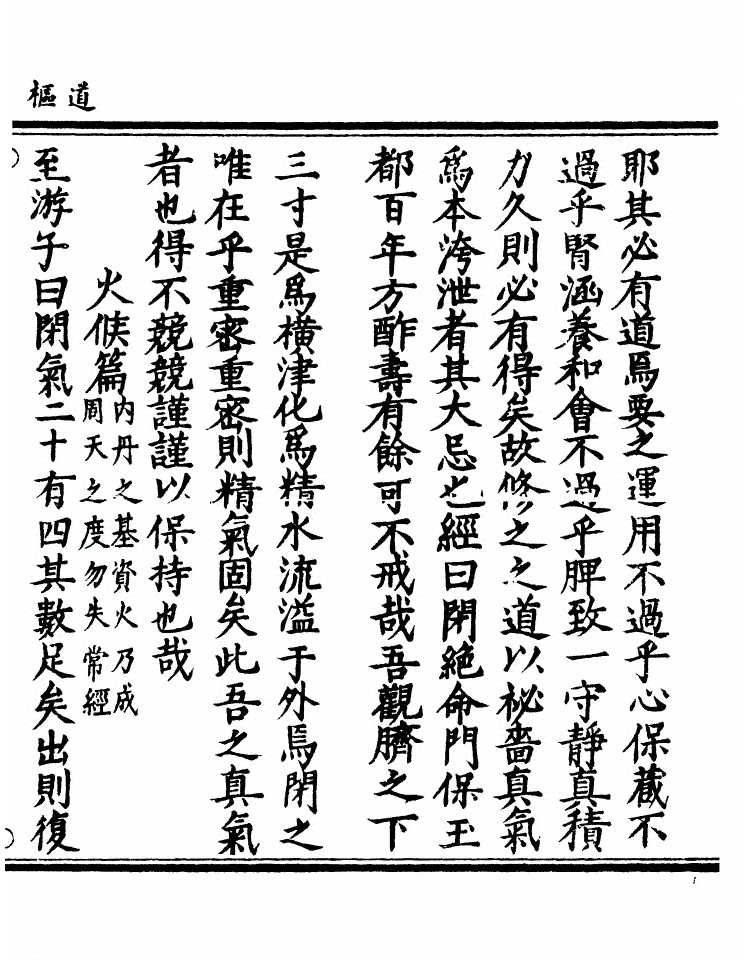 道樞
耶其必有道焉要之運用不過乎心保藏不
過乎腎涵養和會不過乎脾致一守靜真積
力久則必有得矣故修之之道以祕嗇真氣
爲本洿泄者其大忌也經曰閉絕命門保玉
都百年方酢壽有餘可不戒哉吾觀臍之下
三寸是爲橫津化爲精水流溢于外焉閉之
唯在乎重密重密則精氣固矣此吾之真氣
者也得不競競謹謹以保持也哉
火候篇
內丹之基資火乃成
周天之度勿失常經
至游子曰閉氣二十有四其數足矣出則復